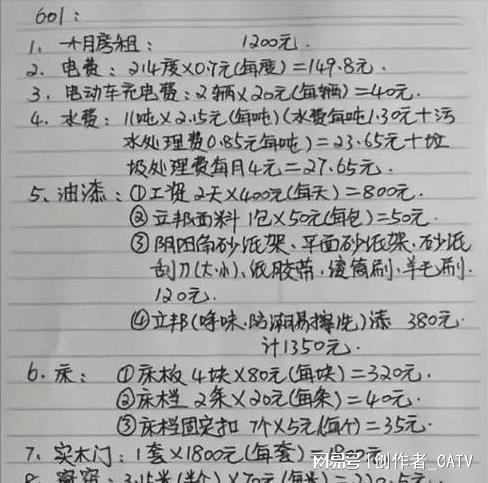 601:
1、一个月房租: 1200元.
2、电费: 214度×0.7元(每度)=149.8元.
3、电动车充电费:2辆×20元(每辆)=40元.
4、水费: 11吨×2.15元(每吨)(水费每吨1.30元+污
水处理费0.85元每吨)=23.65元+垃
圾处理费每月4元=27.65元.
5、油漆:①工资 2天×400元(每天)=800元.
②立邦面料 1包×50元(每包)=50元.
③阴阳角砂纸架、平面砂纸架、砂纸
刮刀(大小)、纸胶带、滚筒刷、羊毛刷.
120元.
④立邦(净味、防潮易擦洗)漆 380元.
计1350元.
6、床: ①床板 4块×80元(每块)=320元.
②床栏 2条×20元(每条)=40元.
③床栏固定扣 7个×5元(每个)=35元.
7、实木门:1套×1800元(每套)=1800元
8、窗帘:3.15米 ×70元(每米)=220.5元.
搜狐号|创作者_CATV